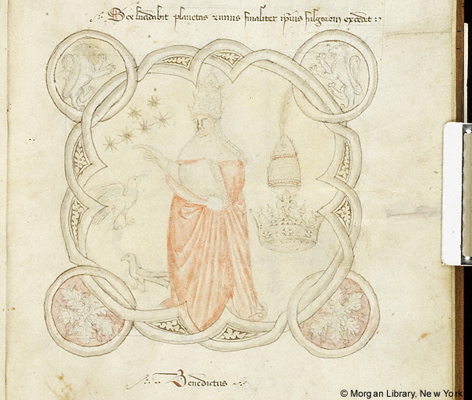 planetas unius finaliter ipsius fulgorem excedet
Benedictus
© Morgan Library, New York